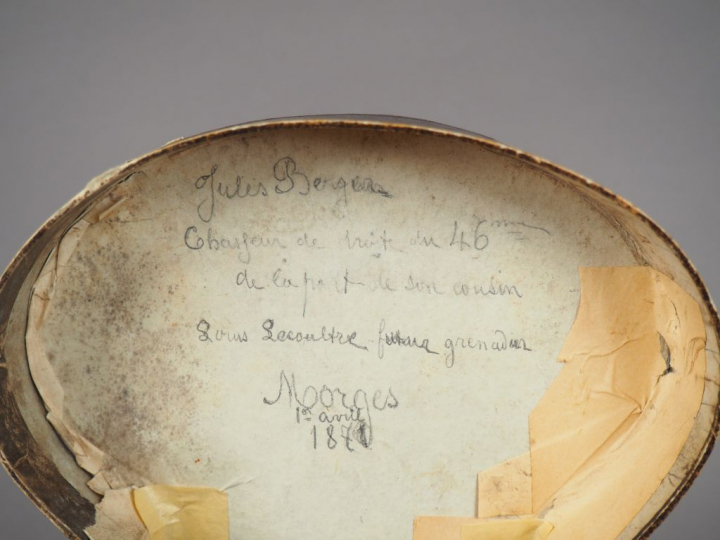 Jules Berger
Chasseur de droite du 46ème
de la part de son cousin
Louis Lecoultre futur grenadier
Morges
1er avril
187